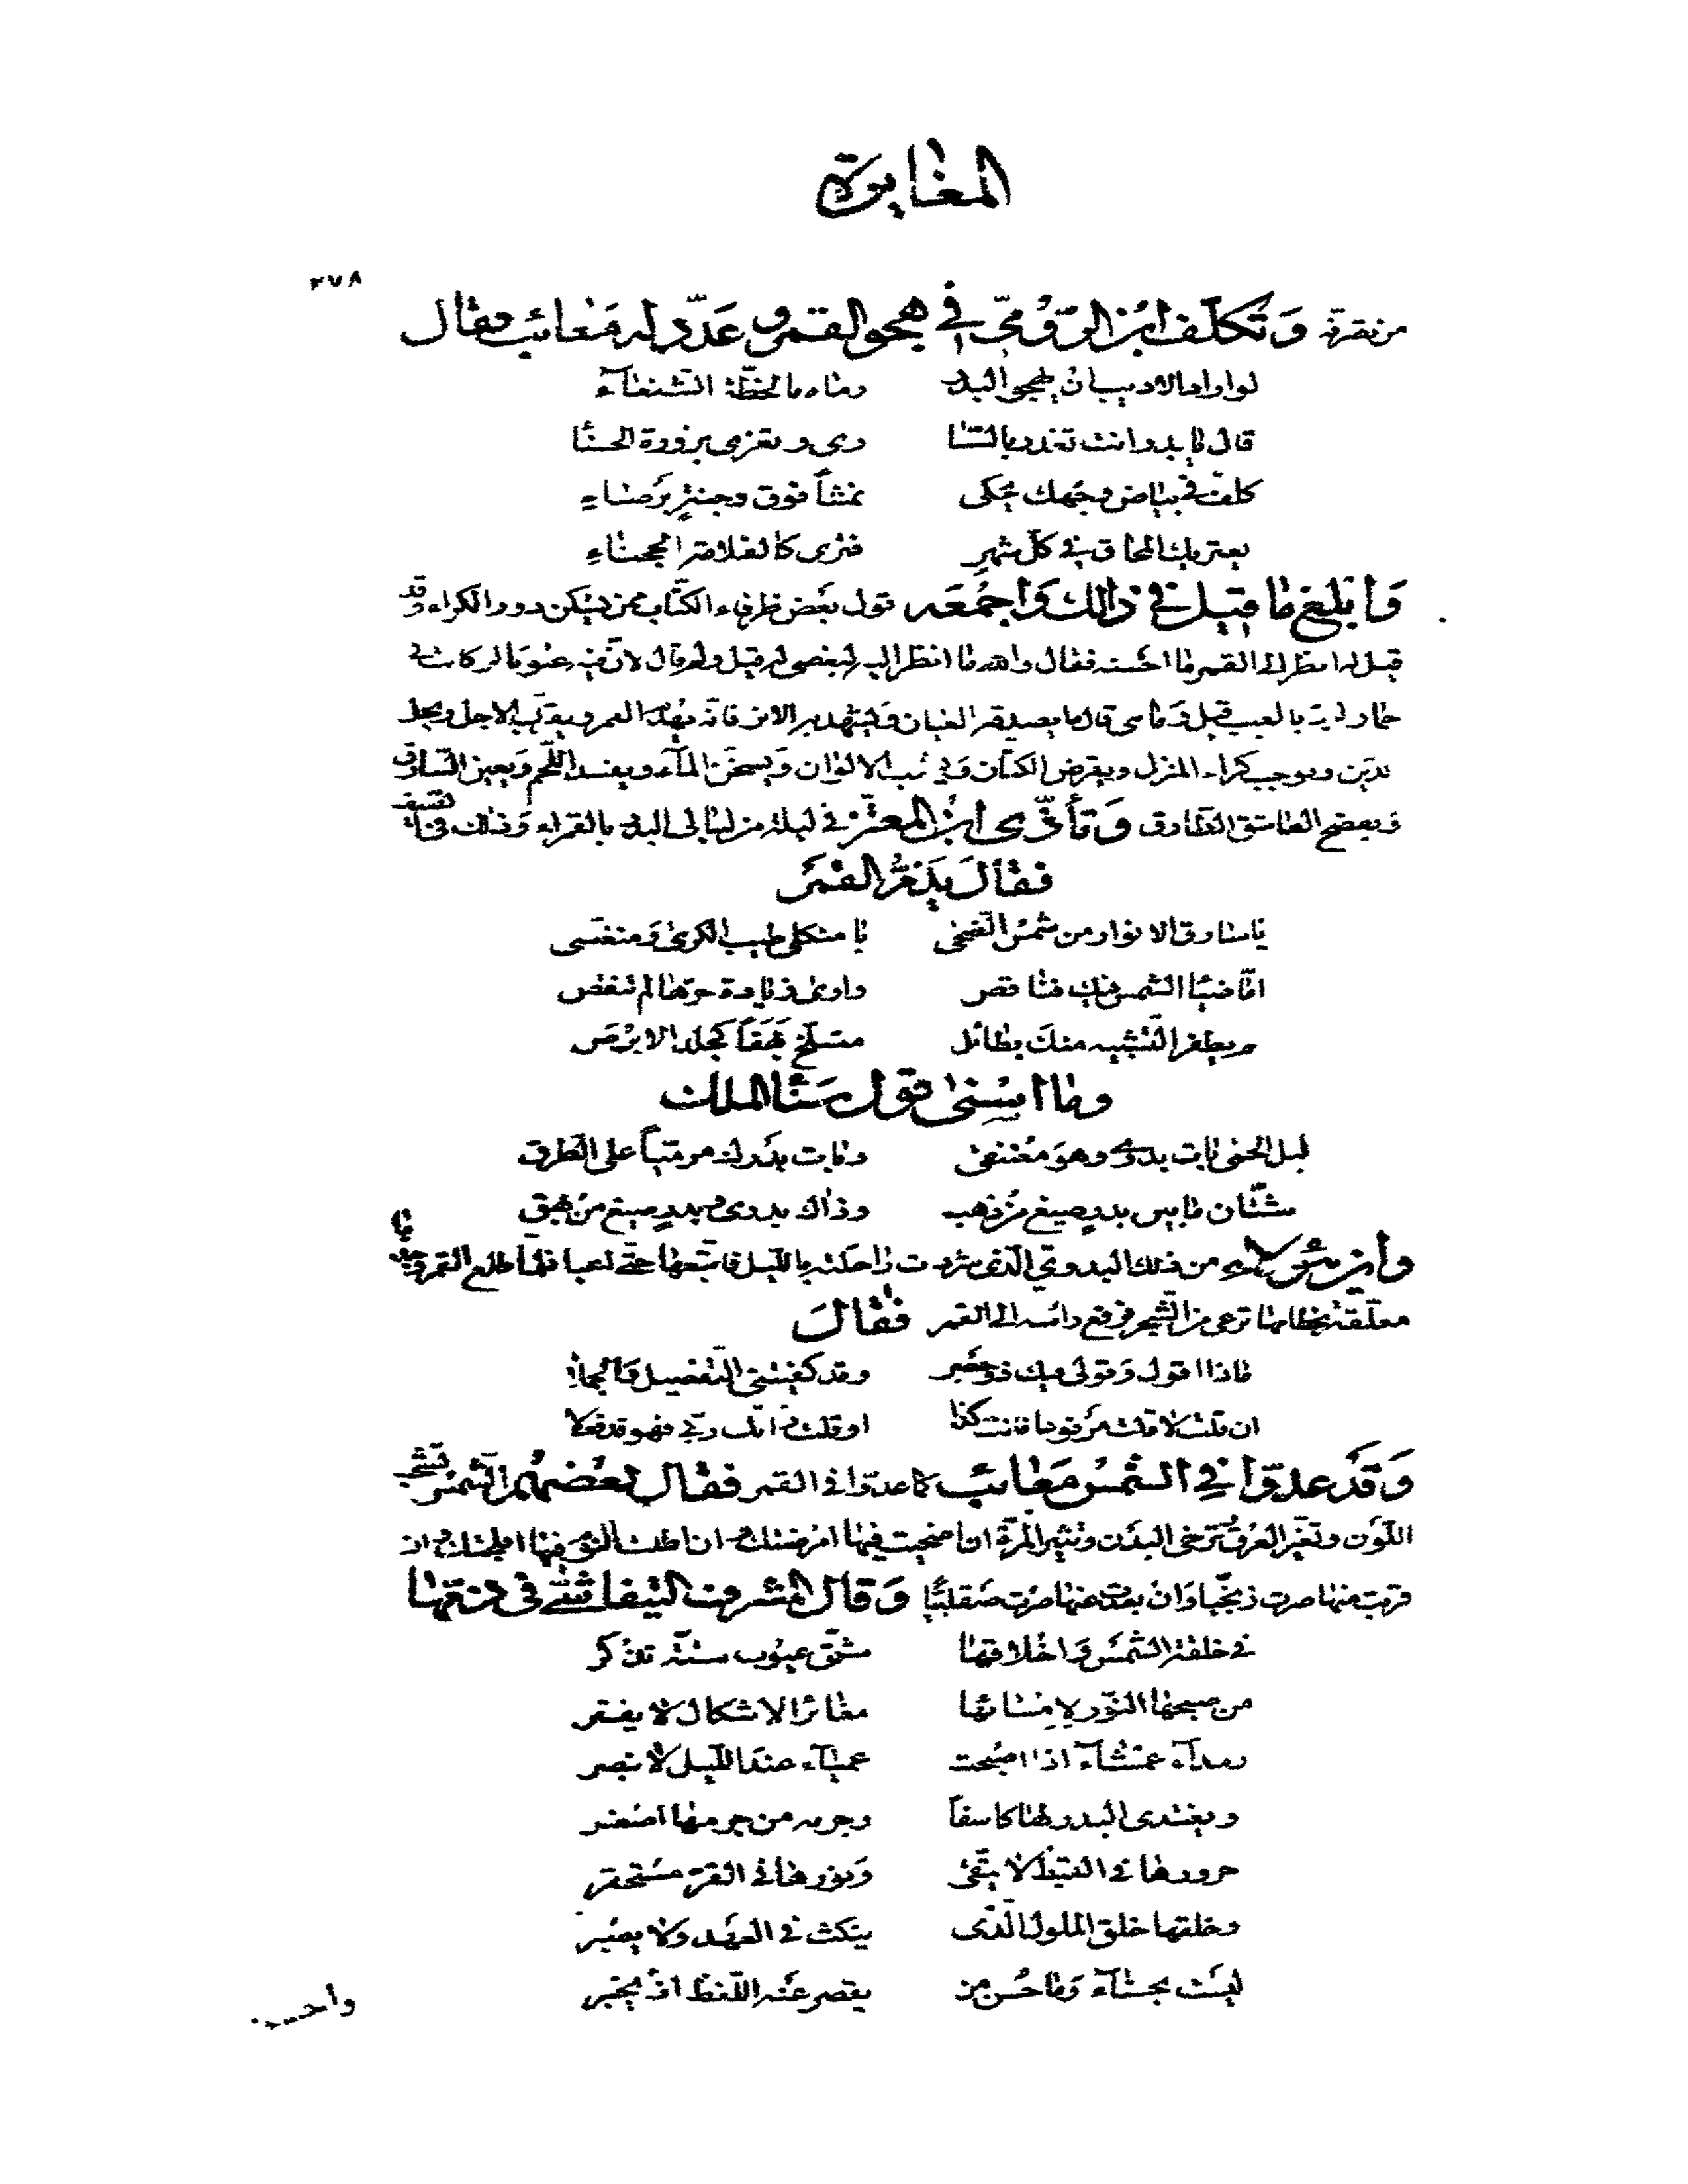 المغايرة
٢٧٨
من نقرته وَتَكلّف ابن الرّوُميّ في هجو القمر وعَدّد له مَعائب فقال
لو اراد الاديب ان يهجو البدر رماه بالخطّة الشنعآء
قال يا بدر انت تغدر بالسّا ري وتغري بزورة الحسنا
كلف في بياض وجهك يحكي نمشاً فوق وجنةٍ بَرصاءِ
يعتريك المحاق في كلّ شهرٍ فترى كالقلامة الحجناءِ
وَابلغ ما قيل في ذلك وَاجمُعَه قول بعَض ظرفاء الكتّاب ممن يسكن دور الكراء وقد
قيل له انظر الى القمر ما احسنه فقال والله ما انظر اليه لبغضي له قيل ولم قال لان فيه عيوبا لو كانت في
حمار لردّ بالعيب قيل وَما هي قال ما يصدقه العيان وَيشهد به الاثر فانه يهدم العمر ويقرّب الاجل ويحل
الدين ويوجب كراء المنزل ويقرض الكتان وَيشحب الالوان وَيسخن المآء ويفسد اللحم وَيعين السارق
وَيفضح العاشق الطارق وَتأذّى ابن المعتزّ في ليلة من ليالي البدر بالقمراء
فقالَ يذمُّ القمَر
يا سارق الانوار من شمس الضّحى يا مثكلي طيب الكرى وَمنغّصي
امّا ضيا الشمس فيك فناقص وارى زيادة حرّها لم تنقص
لم يظفر التّشبيه منك بطائل متسلّخ بَهَقاً كجلد الابرَص
وما اسنى قول سَنا الملك
ليل الحمى بات بدري وهوَ معتنقي وبات بدرك مرميّاً على الطرق
شتّان ما بين بدرٍ صيغ من ذهب وذاك بدري وبدرٍ صيغ من بهق
واين هؤلاء من ذلك البدوي الّذي شردت راحلته بالليل فاتبعها حتّى اعيا فلمّا طلع القمر وجدها
معلّقة بخطامها ترعى من الشّجر فرفع راسه الى القمر فقالَ
ماذا اقول وَقولي فيك ذو حصَر وقد كفيتني التّفصيل وَالجملا
ان قلت لا زلت مرَفوعا فانت كذا او قلت زانك ربّي فهو قد فعلا
وَقَد عدّوا في الشمس مَعائب كما عدّوا في القمر فقال بعضهم الشمس تشحب
اللّون وتغيّر العرق وترخي البدَن وتثير المرّة ان اضحيت فيها امرضتك وان اطلت النوم فيها افلجتك وان
قربت منها صرت زنجيّا وَان بعدت عنها صرت صَقلبيّا وَقال المشرف التيفاشيّ في ذمّها
في خلقة الشمسَ وَاخلاقها شتّى عيوب ستّة تذكر
من صبحها النّور لامسائها مغائر الاشكال لا يفتر
رمدآء عمشآء اذا اصبحت عميآء عند اللّيل لا تبصر
ويغتدي البدر لها كاسفاً وجرمه من جرمها اصغر
حرورها في القيظ لا يتّقى وَنورها في القرّ مستحقر
وخلقها خلق الملول الّذي ينكث في العَهد ولا يصبر
ليسَت بحسنآء وَما حُسن من يقصر عَنه اللّفظ اذ يخبر
واحسن